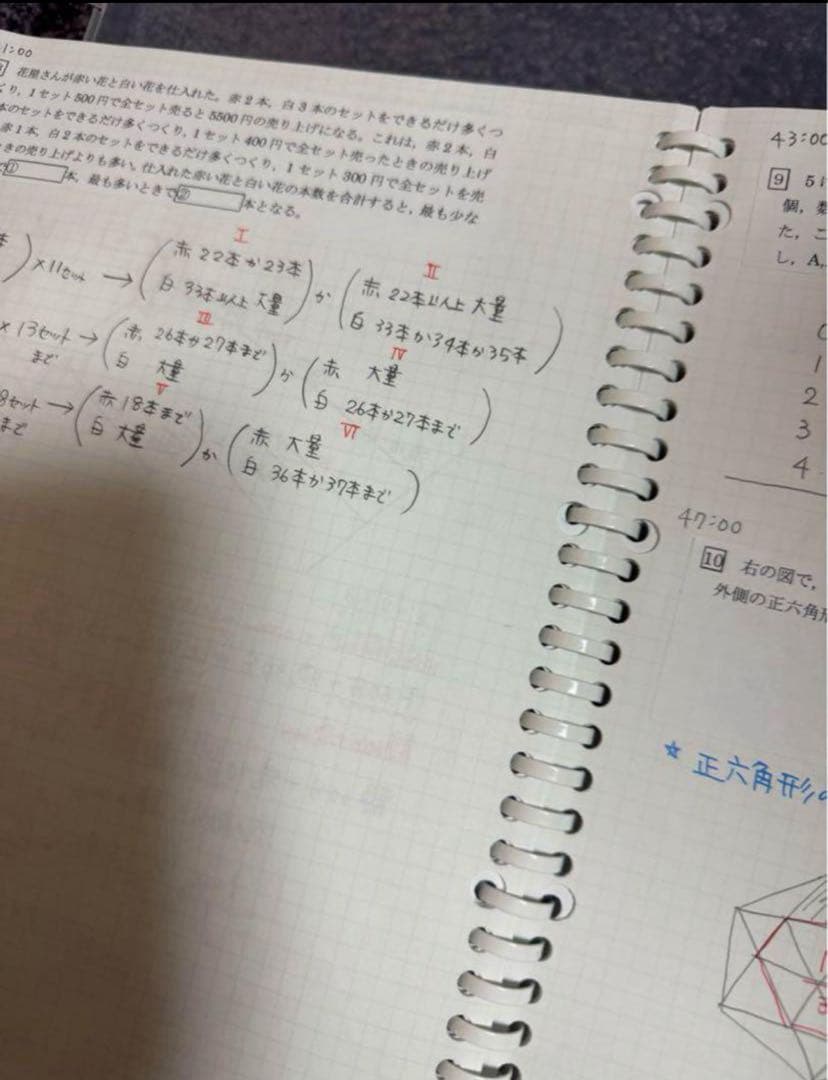 1:00
花屋さんが赤い花と白い花を仕入れた。赤2本，白3本のセットをできるだけ多くつ
くり，1セット500円で全セット売ると5500円の売り上げになる。これは，赤2本，白
本のセットをできるだけ多くつくり，1セット400円で全セット売ったときの売り上げ
赤1本，白2本のセットをできるだけ多くつくり，1セット300円で全セットを売
きの売り上げよりも多い。仕入れた赤い花と白い花の本数を合計すると，最も少な
① 本，最も多いときで ② 本となる。
I
本)×11セット→(赤 22本か23本
白 33本以上 大量)か
II
(赤 22本以上 大量
白 33本か34本か35本)
×13セットまで→
III
(赤 26本か27本まで
白 大量)か
IV
(赤 大量
白 26本か27本まで)
8セットまで→
V
(赤 18本まで
白 大量)か
VI
(赤 大量
白 36本か37本まで)
43:00
9 5
個，数
た，こ
し，A，
1
2
3
4
47:00
10 右の図で，
外側の正六角形
☆ 正六角形の